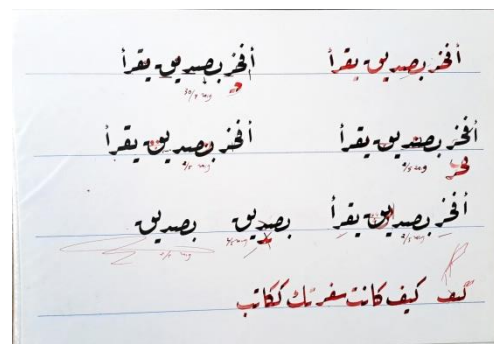 أفخر بصديق يقرأ أفخر بصديق يقرأ
أفخر بصديق يقرأ أفخر بصديق يقرأ
أفخر بصديق يقرأ بصديق بصديق
كيف كيف كانت سفرتك ككاتب